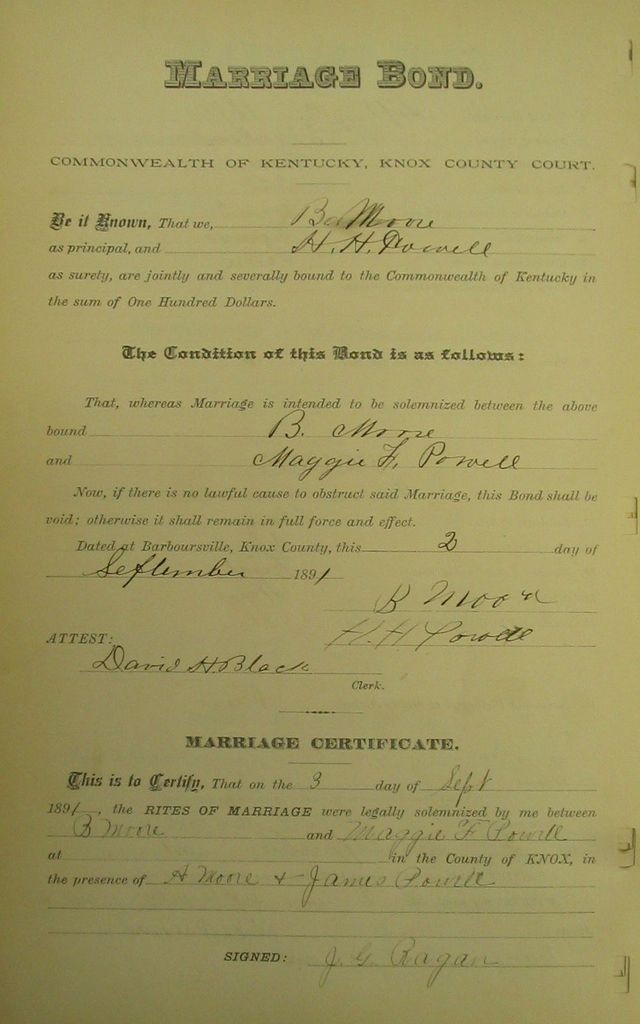 MARRIAGE BOND.
COMMONWEALTH OF KENTUCKY, KNOX COUNTY COURT.
Be it Known, That we, B. Moore
as principal, and H. H. Powell
as surety, are jointly and severally bound to the Commonwealth of Kentucky in
the sum of One Hundred Dollars.
The Condition of this Bond is as follows:
That, whereas Marriage is intended to be solemnized between the above
bound B. Moore
and Maggie F. Powell
Now, if there is no lawful cause to obstruct said Marriage, this Bond shall be
void; otherwise it shall remain in full force and effect.
Dated at Barboursville, Knox County, this 2 day of
September 1891
B Moore
ATTEST: H. H Powell
David H. Black
Clerk.
MARRIAGE CERTIFICATE.
This is to Certify, That on the 3 day of Sept
1891, the RITES OF MARRIAGE were legally solemnized by me between
B Moore and Maggie F Powell
at in the County of KNOX, in
the presence of A Moore + James Powell
SIGNED: J. G. Ragan